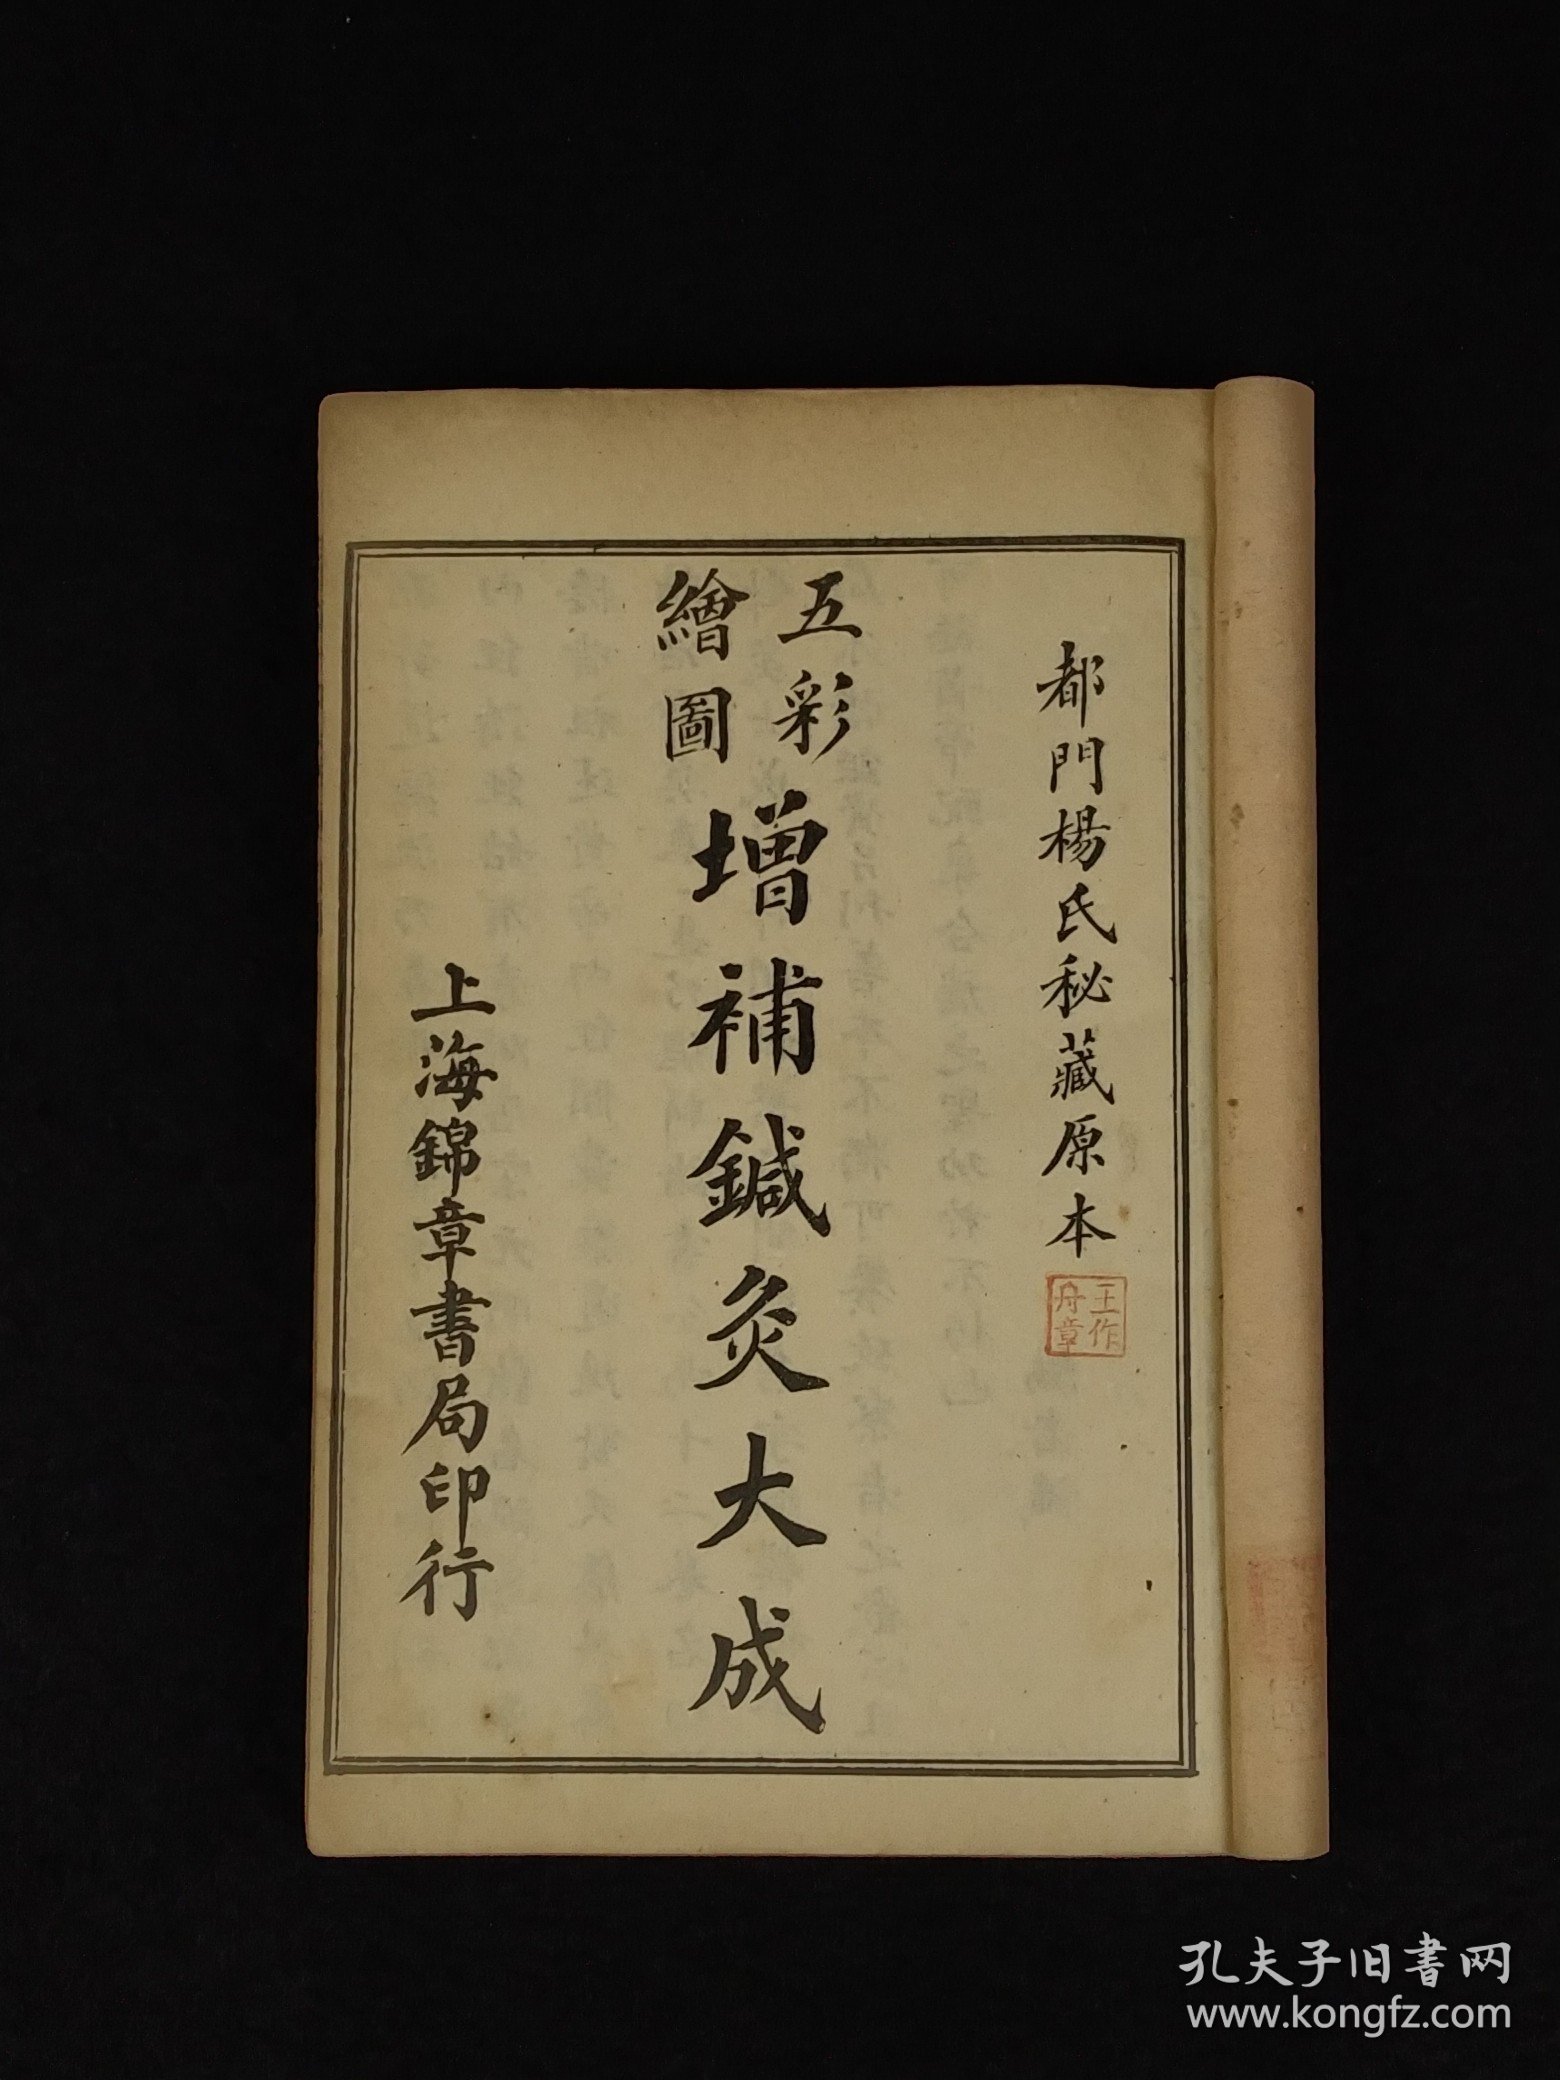 都門楊氏秘藏原本
王作
舟章
五彩
繪圖
增補鍼灸大成
上海錦章書局印行
孔夫子旧書网
www.kongfz.com